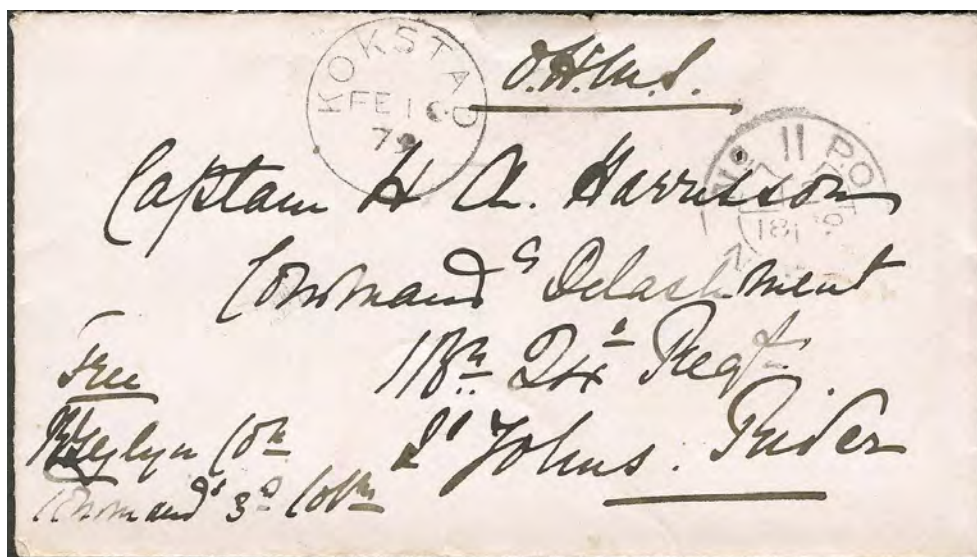 O.H.M.S.
KOKSTAD
FE 16
79
No 11 P.O.
Captain H A. Harrisson
Command^g Detachment
1/Bn 24^th Regt.
St Johns. River
Free
Glyn Col
Command^g 3^d Column